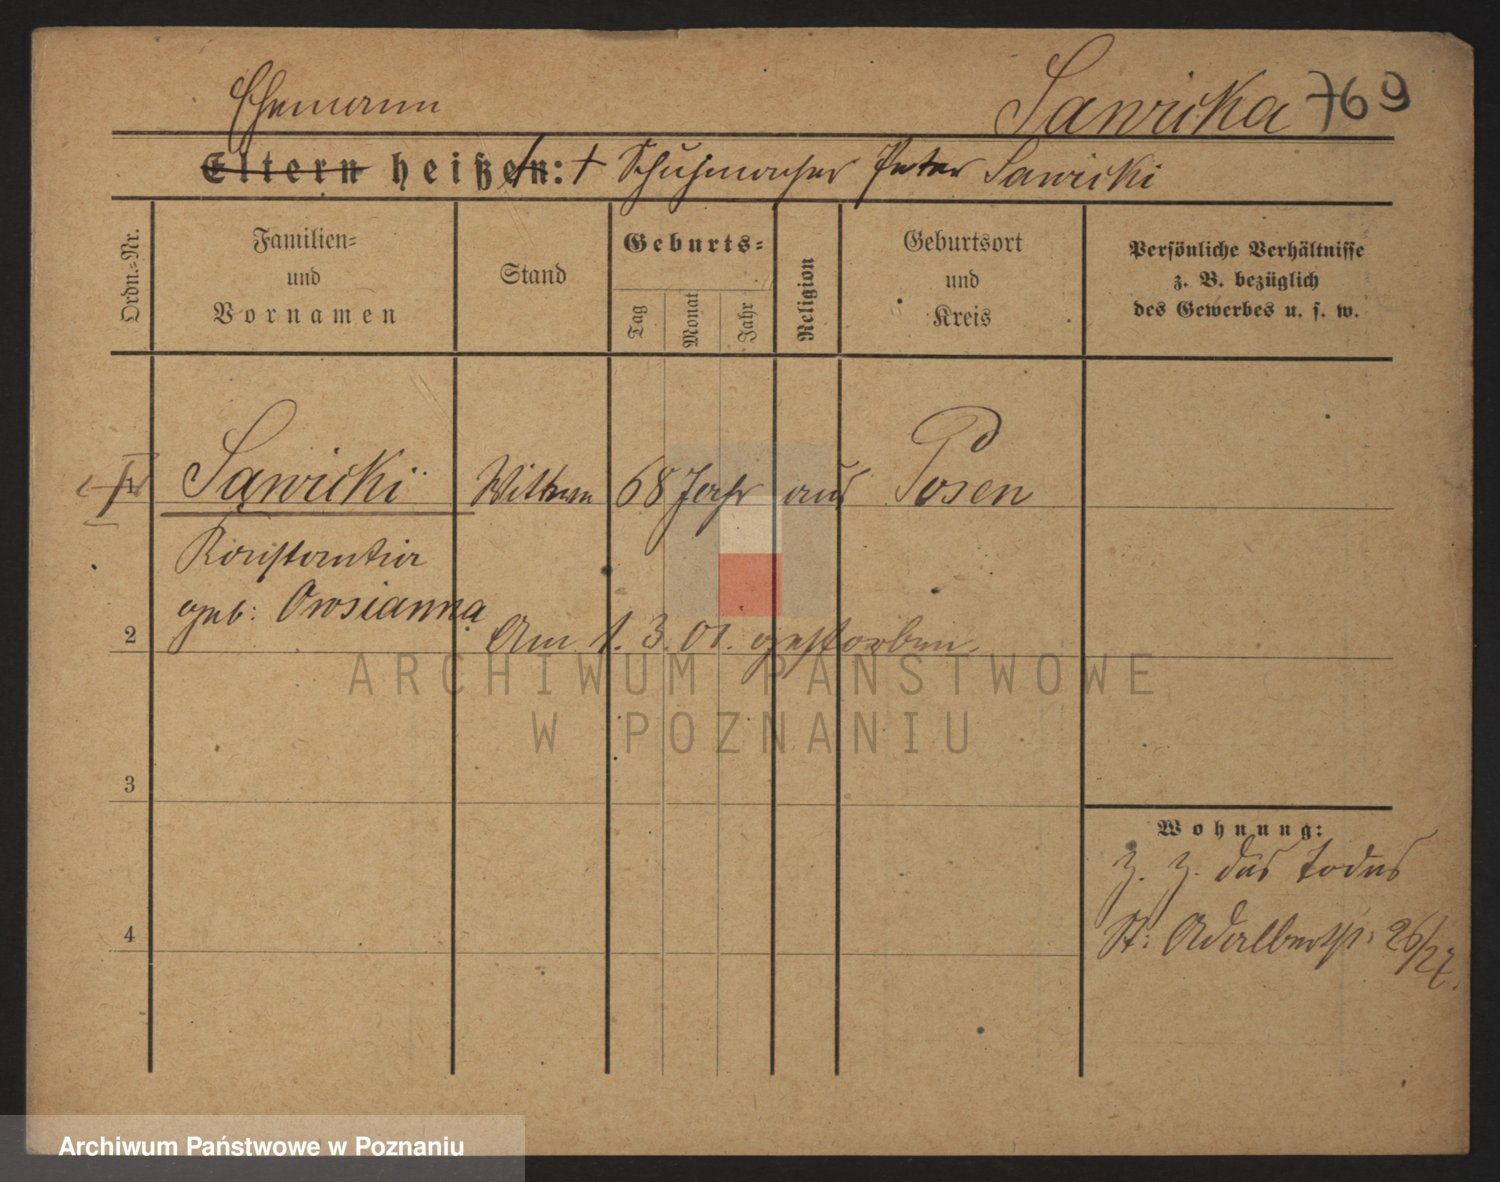 Ehemann Sawicka 769
Eltern heißen: † Schuhmacher Peter Sawicki
Ordn.-Nr.
Familien-
und
Vornamen
Stand
Geburts-
Tag
Monat
Jahr
Religion
Geburtsort
und
Kreis
Persönliche Verhältnisse
z. B. bezüglich
des Gewerbes u. s. w.
1 Sawicki Wittwe 68 Jahr aus Posen
Konstantia
geb: Owsianna
2 Am 1.3.01. gestorben.
ARCHIWUM PAŃSTWOWE
W POZNANIU
3
Wohnung:
z. Z. des Todes
4 St: Adalbertst: 26/27.
Archiwum Państwowe w Poznaniu